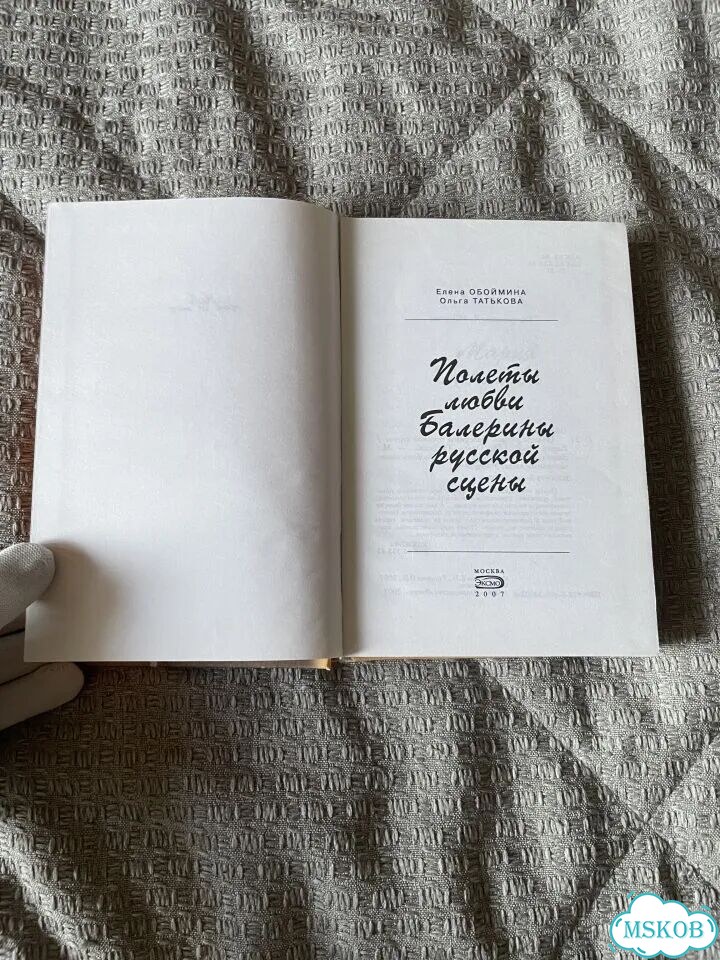 Елена ОБОЙМИНА
Ольга ТАТЬКОВА
Полеты
любви
Балерины
русской
сцены
МОСКВА
ЭКСМО
2007
MSKOB